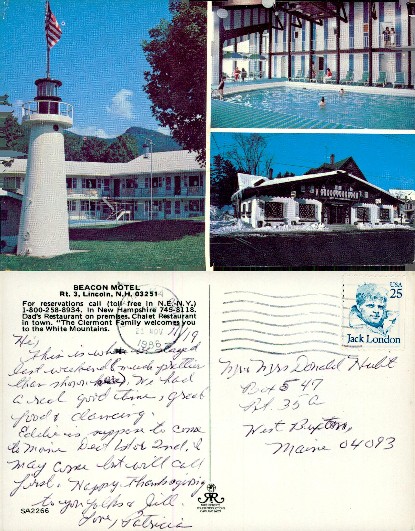 BEACON MOTEL
Rt. 3, Lincoln, N.H. 03251
For reservations call (toll free in N.E.-N.Y.)
1-800-258-8934. In New Hampshire 745-8118.
Dad's Restaurant on premises. Chalet Restaurant
in town. "The Clermont Family welcomes you
to the White Mountains.
11/19
Hi,
This is where we stayed
last weekend (much prettier
than shown here). We had
a real good time, great
food & dancing.
Eddie is suppose to come
to Maine Dec 1st or 2nd, I
may come but will call
first. Happy Thanksgiving
to you folks & Jill.
Love, Patricia
SA2266
USA
25
Jack London
Mr & Mrs Donald
Box 547
Rt. 35A
West Buxton,
Maine 04093